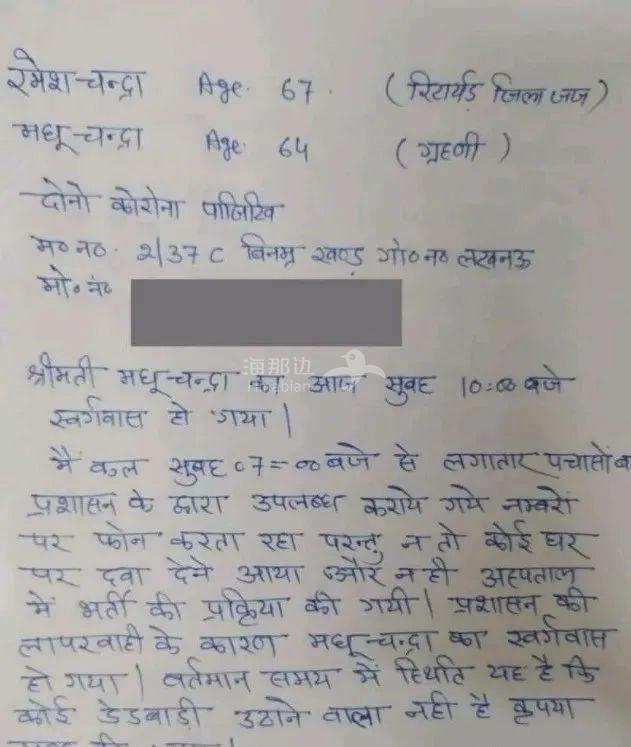 रमेश चन्द्रा Age. 67. (रिटायर्ड जिला जज)
मधू चन्द्रा Age. 64 (ग्रहणी)
दोनो कोरोना पाजिटिव
म० न०. 2/37 C विनम्र खण्ड गो० न० लखनऊ
मो० नं०
海那边
श्रीमती मधू चन्द्रा का आज सुबह 10:00 बजे
स्वर्गवास हो गया।
मैं कल सुबह 07=00 बजे से लगातार पचासों
प्रशासन के द्वारा उपलब्ध कराये गये नम्बरों
पर फोन करता रहा परन्तु न तो कोई घर
पर दवा देने आया और न ही अस्पताल
में भर्ती की प्रक्रिया की गयी। प्रशासन की
लापरवाही के कारण मधू चन्द्रा का स्वर्गवास
हो गया। वर्तमान समय में स्थिति यह है कि
कोई डेडबाडी उठाने वाला नही है कृपया